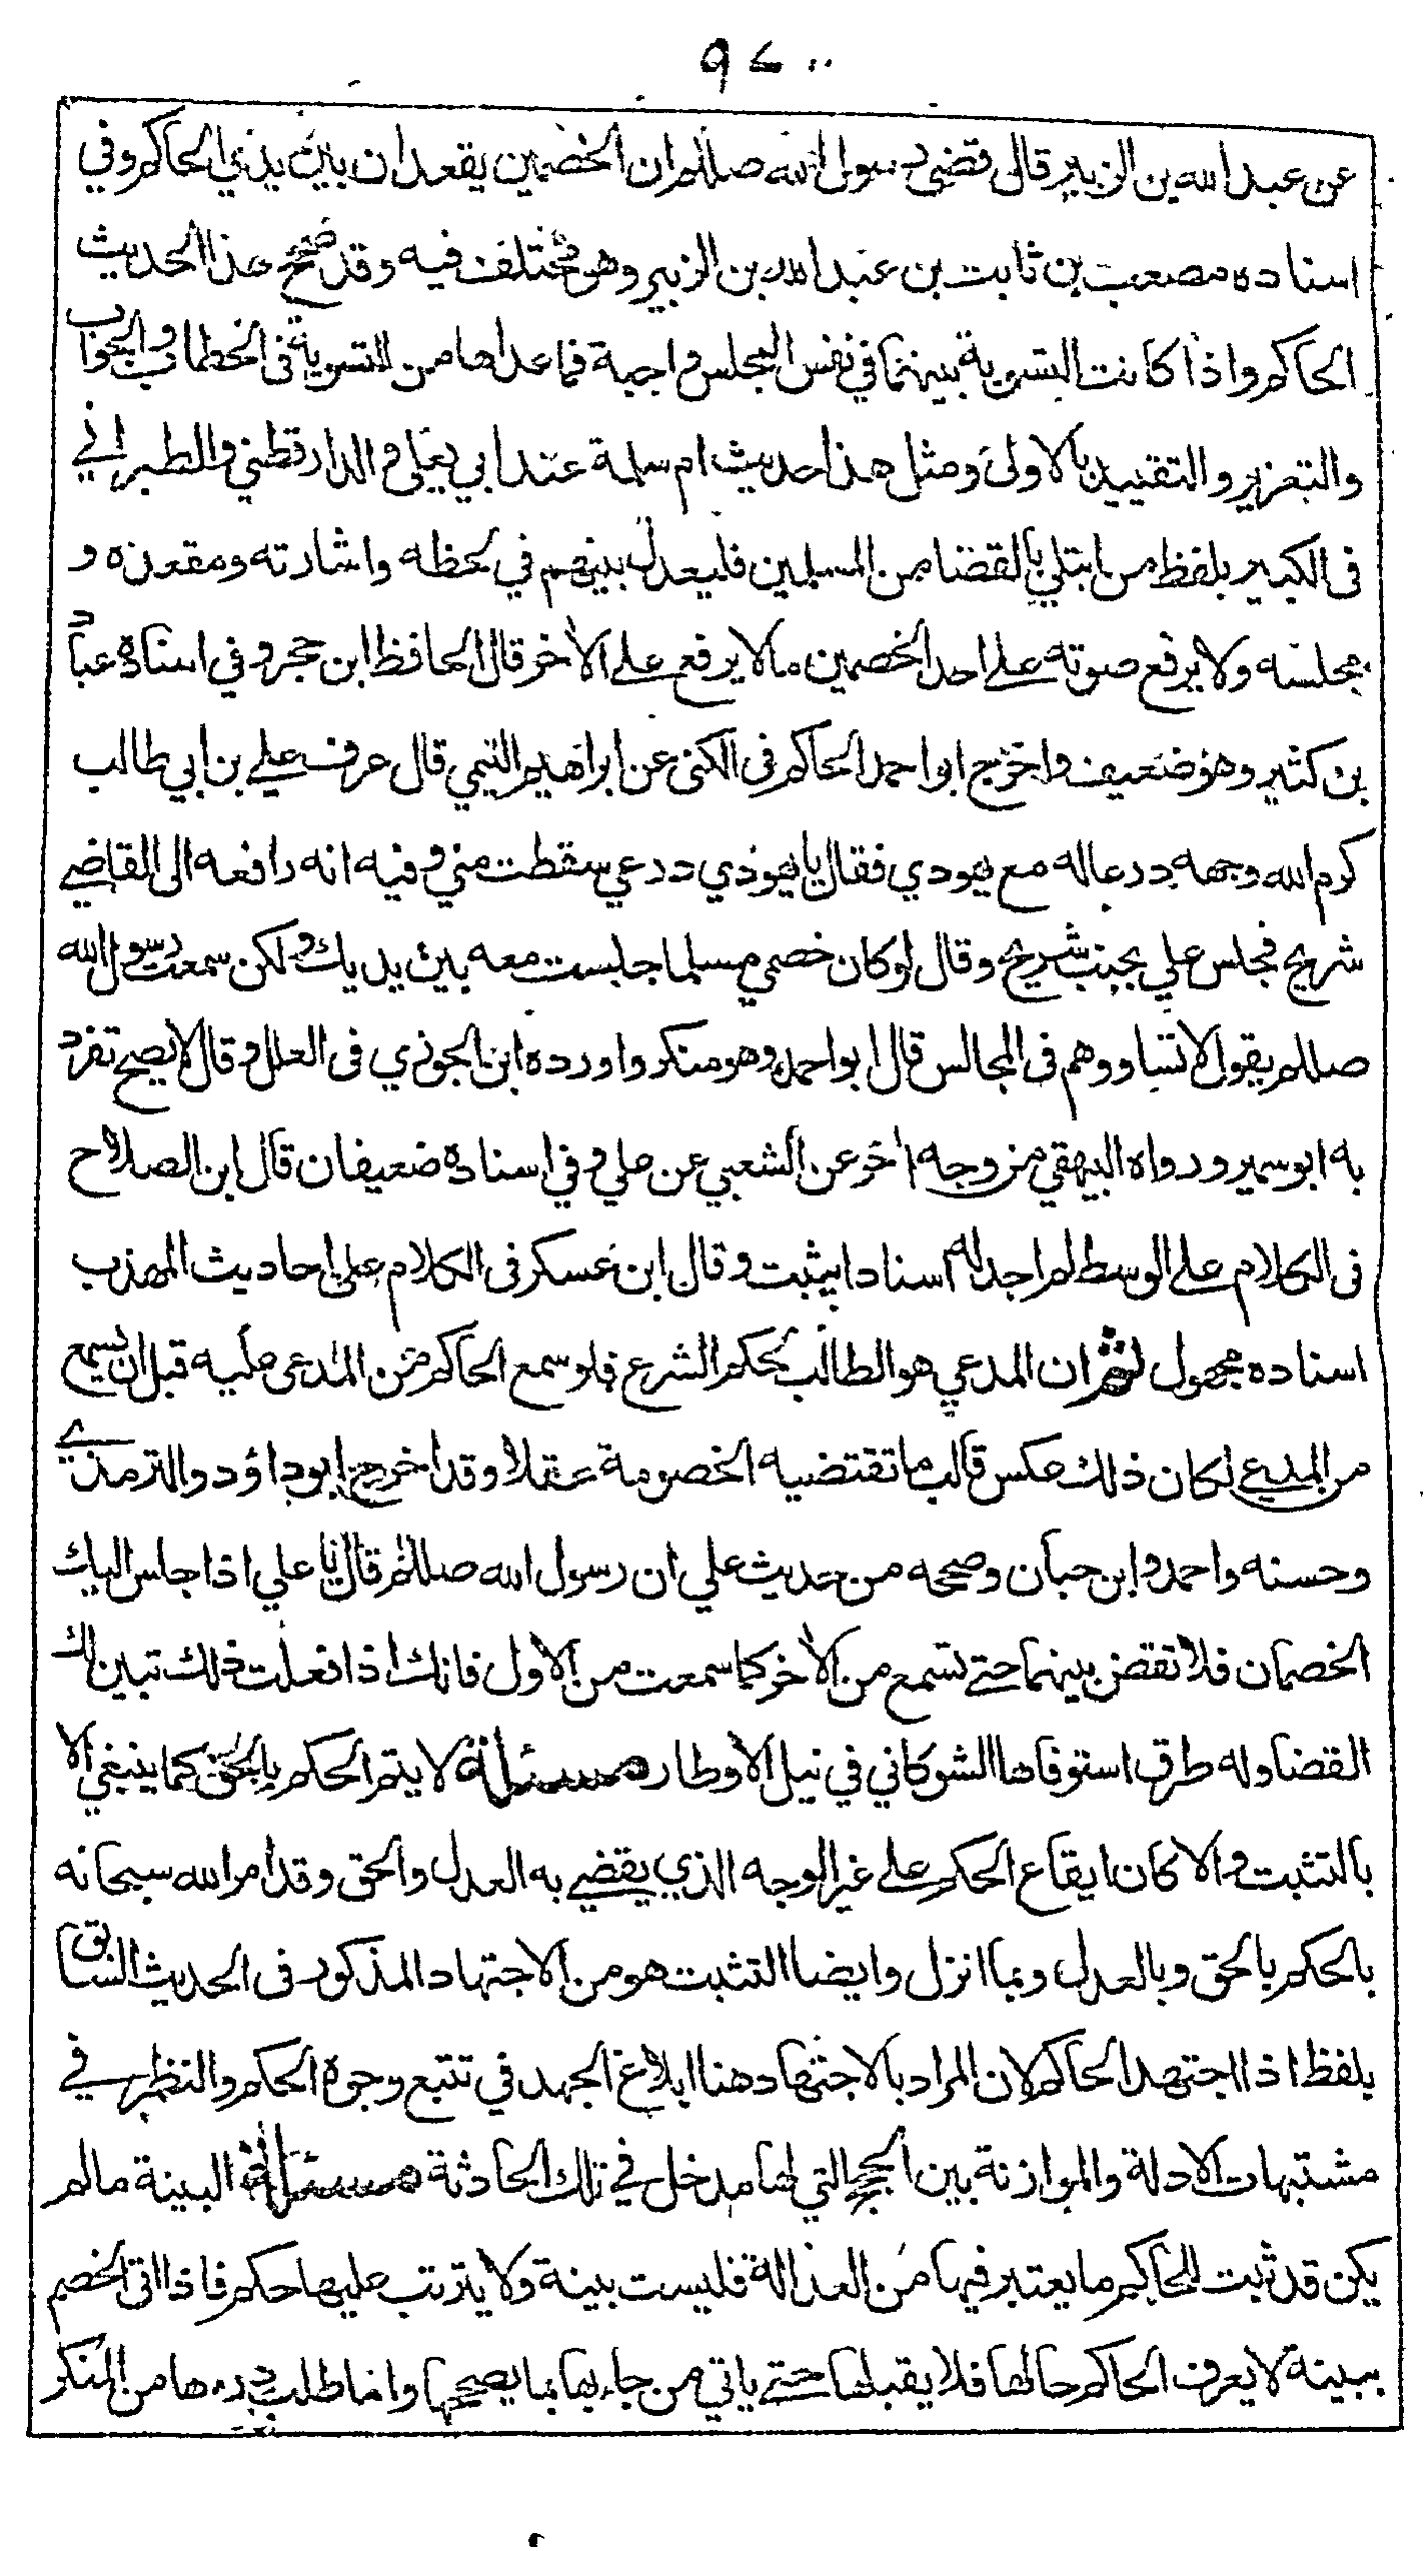 ٩٤
عن عبد الله بن الزبير قال قضى رسول الله صللم ان الخصمين يقعدان بين يدي الحاكم وفي
اسناده مصعب بن ثابت بن عبد الله بن الزبير وهو مختلف فيه وقد صحح هذا الحديث
الحاكم واذا كانت التسوية بينهما في نفس المجلس واجبة فما عداها من التسوية فى الخطاب والجواب
والتعزير والتقييد بالاولى ومثل هذا حديث ام سلمة عند ابي يعلى والدارقطني والطبراني
فى الكبير بلفظ من ابتلي بالقضا من المسلمين فليعدل بينهم في لحظه واشارته ومقعده و
مجلسه ولا يرفع صوته على احد الخصمين مالا يرفع على الاٰخر قال الحافظ ابن حجر وفي اسناده عباد
بن كثير وهو ضعيف واخرج ابو احمد الحاكم فى الكنى عن ابراهيم التيمي قال عرف علي بن ابي طالب
كرم الله وجهه درعا له مع يهودي فقال يا يهودي درعي سقطت مني وفيه انه رافعه الى القاضي
شريح فجلس علي بجنب شريح وقال لو كان خصمي مسلما جلست معه بين يديك ولكن سمعت رسول الله
صللم يقول لا تساووهم فى المجالس قال ابو احمد وهو منكر واورده ابن الجوزي فى العلل وقال لا يصح تفرد
به ابو سمير ورواه البيهقي من وجه اٰخر عن الشعبي عن علي وفي اسناده ضعيفان قال ابن الصلاح
فى الكلام على الوسط لم اجد له اسنادا يثبت وقال ابن عسكر فى الكلام على احاديث المهذب
اسناده مجهول ثم ان المدعي هو الطالب لحكم الشرع فلو سمع الحاكم من المدعى عليه قبل ان يسمع
من المدعي لكان ذلك عكس قالب ما تقتضيه الخصومة عقلا وقد اخرج ابو داؤد والترمذي
وحسنه واحمد وابن حبان وصححه من حديث علي ان رسول الله صللم قال يا علي اذا جلس اليك
الخصمان فلا تقض بينهما حتى تسمع من الاٰخر كما سمعت من الاول فانك اذا فعلت ذلك تبين لك
القضا وله طرق استوفاها الشوكاني في نيل الاوطار مسئلة لا يتم الحكم بالحق كما ينبغي الا
بالتثبت والا كان ايقاع الحكم على غير الوجه الذي يقضي به العدل والحق وقد امر الله سبحانه
بالحكم بالحق وبالعدل وبما انزل وايضا التثبت هو من الاجتهاد المذكور فى الحديث السابق
بلفظ اذا اجتهد الحاكم لان المراد بالاجتهاد هنا ابلاغ الجهد في تتبع وجوه الحكم والنظر في
مشتبهات الادلة والموازنة بين الحجج التي لها مدخل في تلك الحادثة مسئلة البينة مالم
يكن قد ثبت للحاكم ما يعتبر فيها من العدالة فليست ببينة ولا يترتب عليها حكم فاذا اتى الخصم
ببينة لا يعرف الحاكم حالها فلا يقبلها حتى ياتي من جاء بها بما يصححها واما طلب درءها من المنكر